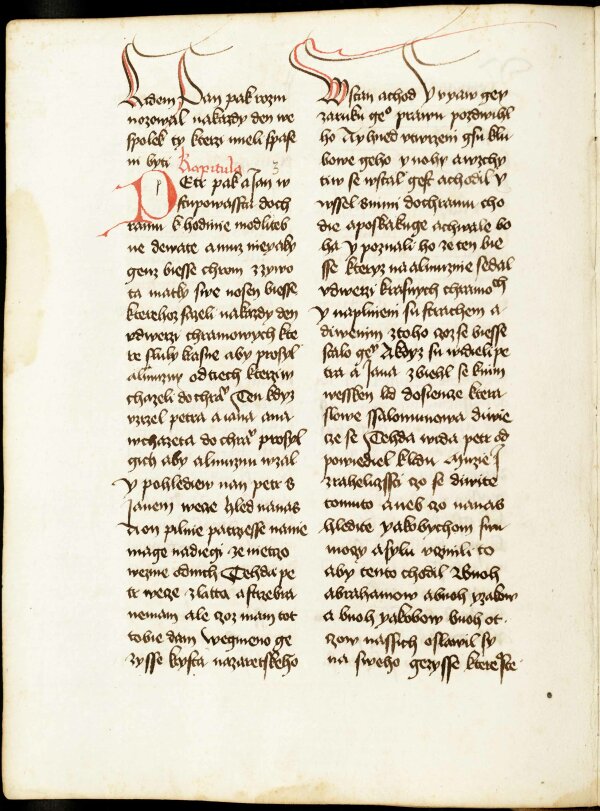 Lidem Pan pak rozm
nozowal nakazdy den we
spolek ty kterzi imeli spase
ni byti Kapitula 3
PEtr pak a Jan w
stupowassta doch
ramu k hodinie modliteb
ne dewate a muz nieyaky
genz biesse chrom zzywo
ta matky swe nosen biesse
kterehoz sazeli nakazdy den
vdwerzi chramowych kte
re sluly krasne aby prosyl
almuzny odtiech kterziw
chazeli dochra Ten kdyz
vzrzel petra aiana ana
wchazeta dochra prosyl
gich aby almuznu wzal
y pohlediew nan petr s
Janem wece hled nanas
A on pilnie patrzesse nanie
mage nadiegi ze nietco
wezme odnich Tehda pe
tr wece zlatta astrziebra
nemam ale czoz mam tot
tobie dam wegmeno ge
zysse krysta nazaretskeho
Wstan achod Y vyaw gey
zaruku geo prawu pozdwihl
ho Aynhed vtwrzeni gsu klu
bowe geho y nohy awzchy
tiw se wstal gest achodil y
wssel snimi dochramu cho
die aposkakuge achwale bo
ha y poznali ho ze ten bie
sse kteryz na almuznie sedal
vdwerzi krasnych chramoch
y naplnieni su strachem a
diwenim ztoho czoz se biesse
stalo geo Akdyz su widieli pe
tra a Jana zbiehl se knim
wessken lid dosienze ktera
slowe ssalomunowa diwie
cze se Tehda vida petr od
powiediel klidu Muzie J
zrahelczssti czo se diwite
tomuto aneb czo nanas
hledite yakobychom swu
moczy asylu vcznili to
aby tento chodil Buoh
abrahamow abuoh yzakow
a buoh yakobow buoh ot
czow nassich oslawil sy
na sweho gezysse ktereste